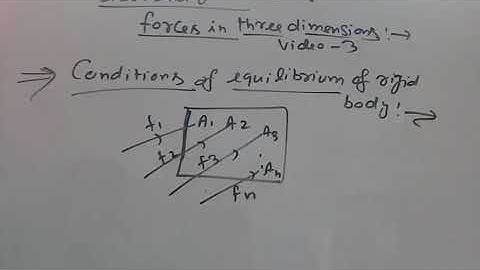 forces in three dimensions:→
Video-3
⇒ Conditions of equilibrium of rigid
body:→
f1 A1 A2 A3
f2 f3 An
fn